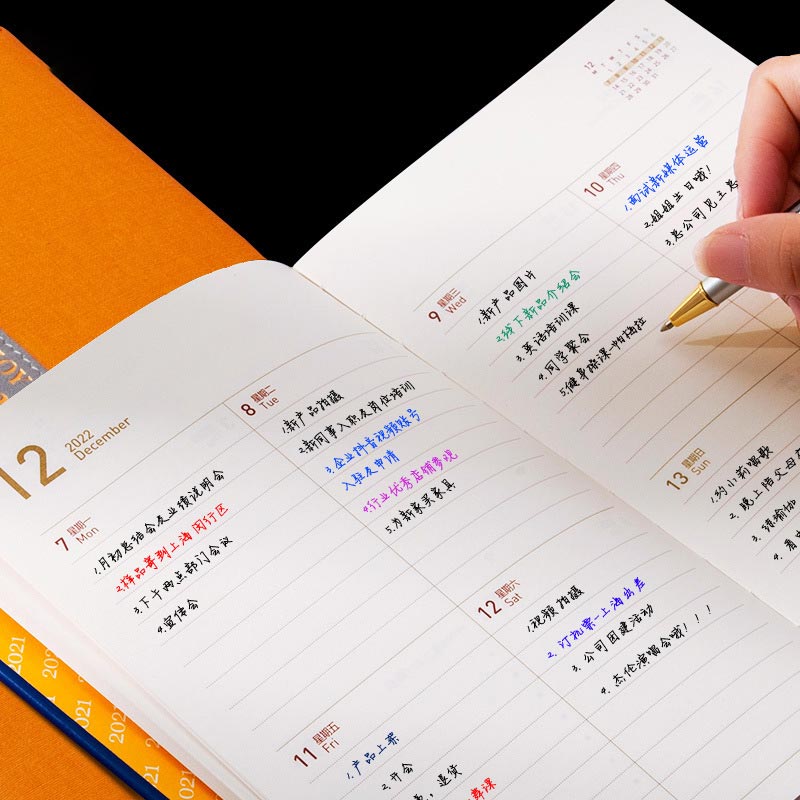 12
2022
December
7 星期一
Mon
1.月初总结会及业绩说明会
2.样品寄到上海闵行区
3.下午两点部门会议
4.宣传会
8 星期二
Tue
1.新产品拍摄
2.新同事入职及岗位培训
3.企业抖音视频账号
入驻及申请
4.行业优秀店铺参观
5.为新家买家具
11 星期五
Fri
1.产品上架
2.开会
退货
12 星期六
Sat
1.视频拍摄
2.订机票-上海出差
3.公司团建活动
4.杰伦演唱会哦!!!
12
M T W T F S S
9 星期三
Wed
1.新产品图片
2.线下新品介绍会
3.英语培训课
4.同学聚会
5.健身操课-帕梅拉
10 星期四
Thu
1.面试新媒体运营
2.姐姐生日哦!
3.总公司见王总
13 星期日
Sun
1.约小莉唱歌
2.晚上陪父母
3.练瑜伽
2021
2021
2021
2021
2021